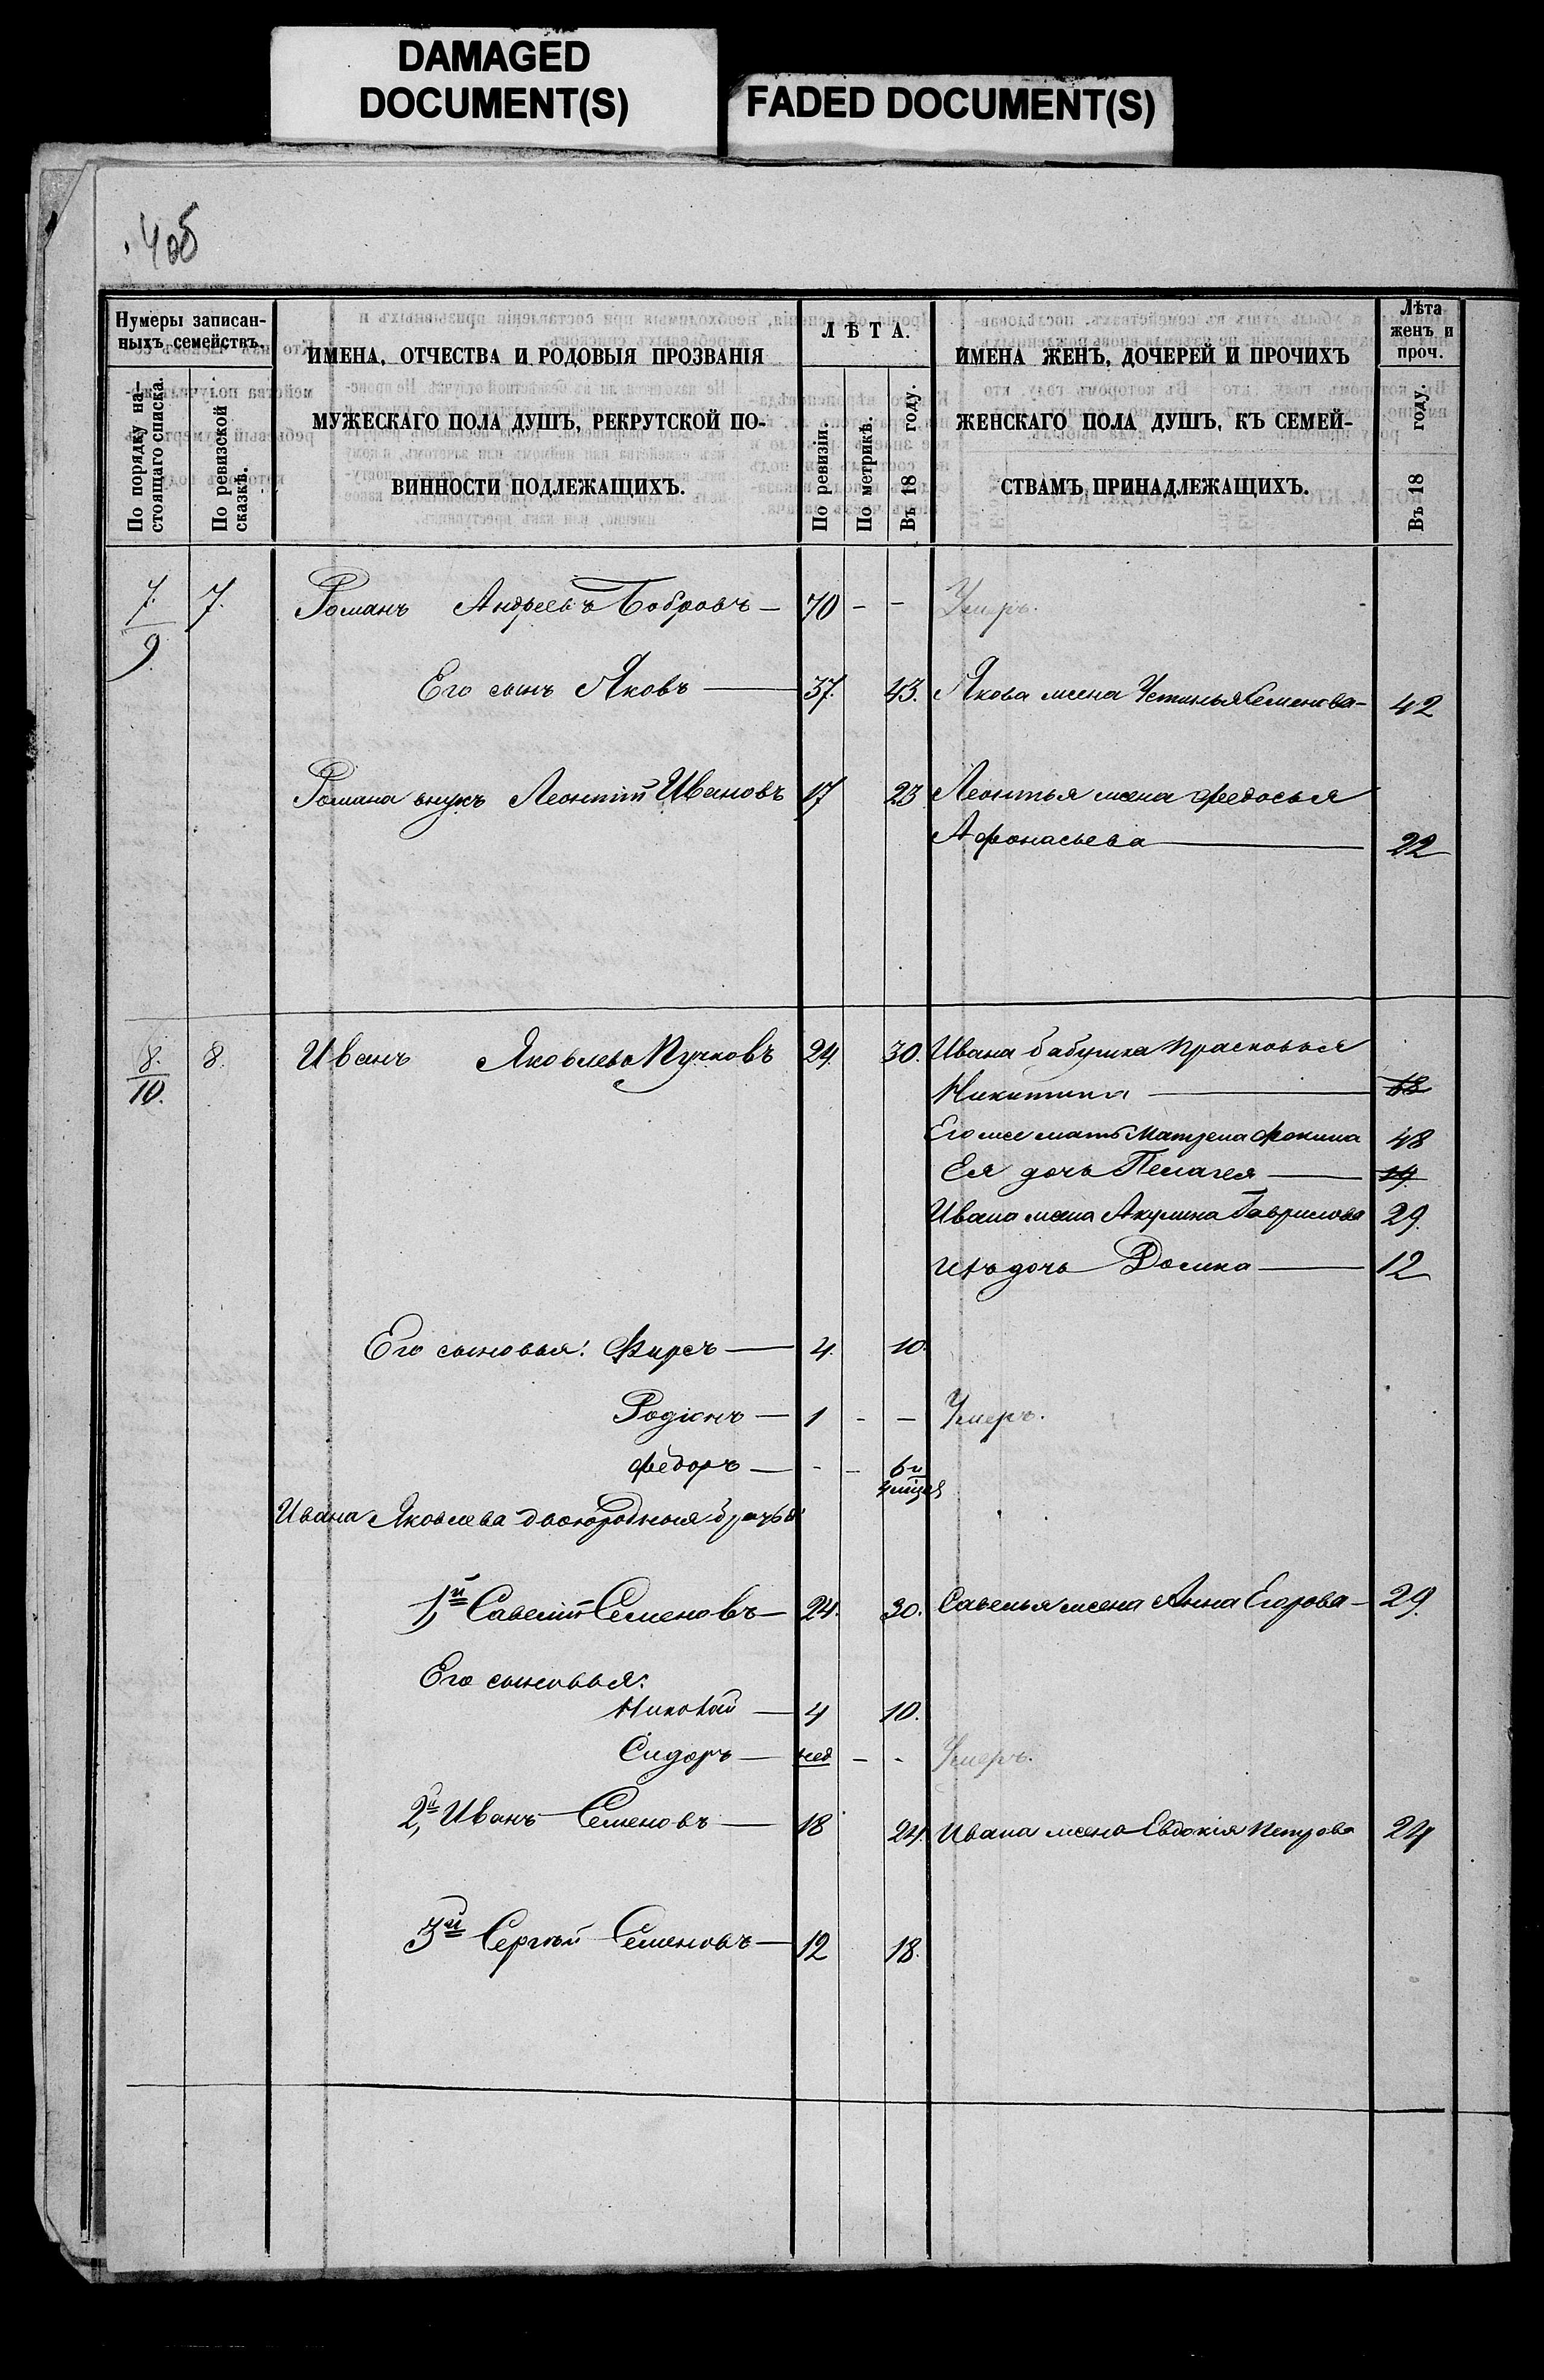 DAMAGED
DOCUMENT(S)
FADED DOCUMENT(S)
Нумеры записан-
ныхъ семействъ.
По порядку на-
стоящаго списка.
По ревизской
сказкѣ.
ИМЕНА, ОТЧЕСТВА И РОДОВЫЯ ПРОЗВАНІЯ
МУЖЕСКАГО ПОЛА ДУШЪ, РЕКРУТСКОЙ ПО-
ВИННОСТИ ПОДЛЕЖАЩИХЪ.
ЛѢТА.
По ревизіи.
По метрикѣ.
Въ 18 году.
ИМЕНА ЖЕНЪ, ДОЧЕРЕЙ И ПРОЧИХЪ
ЖЕНСКАГО ПОЛА ДУШЪ, КЪ СЕМЕЙ-
СТВАМЪ ПРИНАДЛЕЖАЩИХЪ.
Лѣта
женъ и
проч.
Въ 18 году.
7. 7. Романъ Андреевъ Бобровъ — 70 - - Умеръ.
9.
Его сынъ Яковъ — 37. 43. Якова жена Устинья Семенова - 42
Романа внукъ Леонтій Ивановъ 17 23 Леонтья жена Федосья
Афонасьева — 22
8. 8. Иванъ Яковлевъ Пучковъ 24. 30. Ивана бабушка Прасковья
10.
Никитина — 68
Его же мать Матрена Фокина 48
Ея дочь Пелагея — 19
Ивана жена Акулина Гаврилова 29.
Ихъ дочь Домна — 12
Его сыновья: Фирсъ — 4. 10.
Родіонъ — 1 - - Умеръ.
Федоръ — - - 6и
Ивана Яковлева двоюродныя братья
1,й Савелій Семеновъ — 24. 30. Савелья жена Анна Егорова - 29.
Его сыновья:
Николай — 4 10.
Сидоръ — нед - - Умеръ.
2,й Иванъ Семеновъ — 18 24. Ивана жена Евдокія Петрова 24
3й Сергѣй Семеновъ — 12 18.